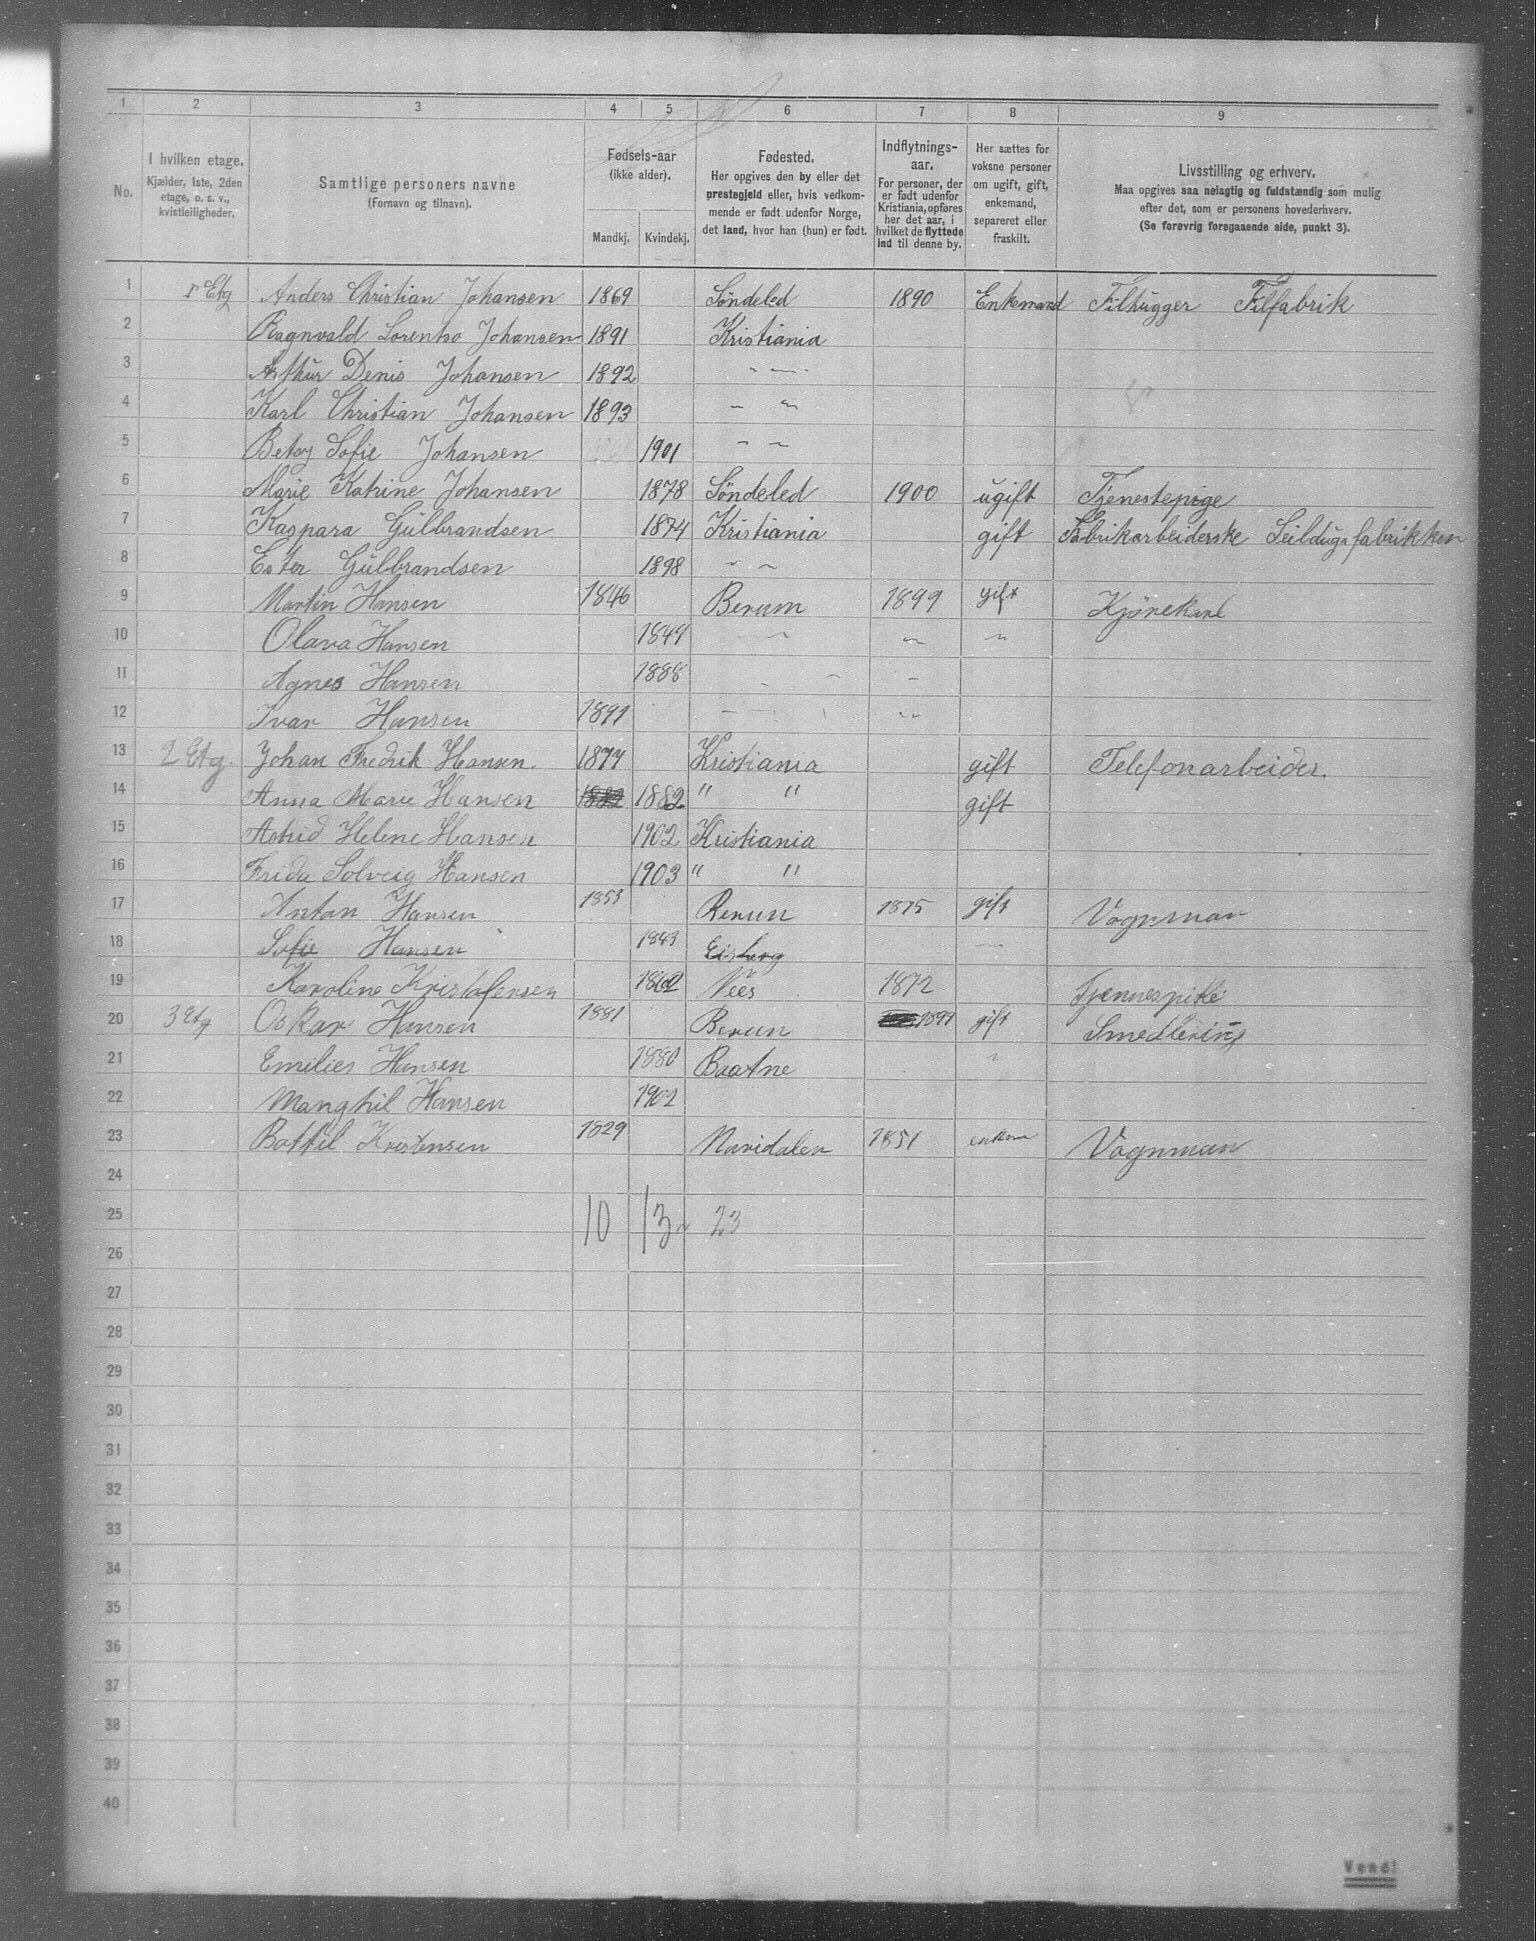 1 2 3 4 5 6 7 8 9
No.
I hvilken etage.
Kjælder, 1ste, 2den
etage, o. s. v.,
kvistleiligheder.
Samtlige personers navne
(Fornavn og tilnavn).
Fødsels-aar
(ikke alder).
Mandkj. Kvindekj.
Fødested.
Her opgives den by eller det
prestegjeld eller, hvis vedkom-
mende er født udenfor Norge,
det land, hvor han (hun) er født.
Indflytnings-
aar.
For personer, der
er født udenfor
Kristiania, opføres
her det aar, i
hvilket de flyttede
ind til denne by.
Her sættes for
voksne personer
om ugift, gift,
enkemand,
separeret eller
fraskilt.
Livsstilling og erhverv.
Maa opgives saa nøiagtig og fuldstændig som mulig
efter det, som er personens hovederhverv.
(Se forøvrig foregaaende side, punkt 3).
1 1 Etg Anders Christian Johansen 1869 Söndeled 1890 Enkemand Filhugger Filfabrik
2 Ragnvald Lorentso Johansen 1891 Kristiania
3 Arthur Denis Johansen 1892 " "
4 Karl Christian Johansen 1893 " "
5 Betsy Sofie Johansen 1901 " "
6 Marie Katrine Johansen 1878 Söndeled 1900 ugift Tjenestepige
7 Kaspara Gulbrandsen 1874 Kristiania gift Fabrikarbeiderske Seildugsfabrikken
8 Ester Gulbrandsen 1898 " "
9 Martin Hansen 1846 Berum 1899 gift Kjörekarl
10 Olava Hansen 1849 " " "
11 Agnes Hansen 1888 " " "
12 Ivar Hansen 1891 " "
13 2 Etg. Johan Fredrik Hansen. 1877 Kristiania gift Telefonarbeider.
14 Anna Marie Hansen 1882 1882 " " gift
15 Astrid Helene Hansen 1902 Kristiania
16 Frida Solveig Hansen 1903 " "
17 Anton Hansen 1853 Berun 1875 gift Vognman
18 Sofie Hansen 1843 "
19 Karoline Kristofensen 1862 Nees 1872 Tjennespike
20 3 Etg Oskar Hansen 1881 Berun 1899 gift Smedlering
21 Emilies Hansen 1880 Baatne "
22 Manghil Hansen 1902
23 Bottil Kristensen 1829 Maridalen 1851 enkem Vognman
24
25 10 13 23
26
27
28
29
30
31
32
33
34
35
36
37
38
39
40
Vend!